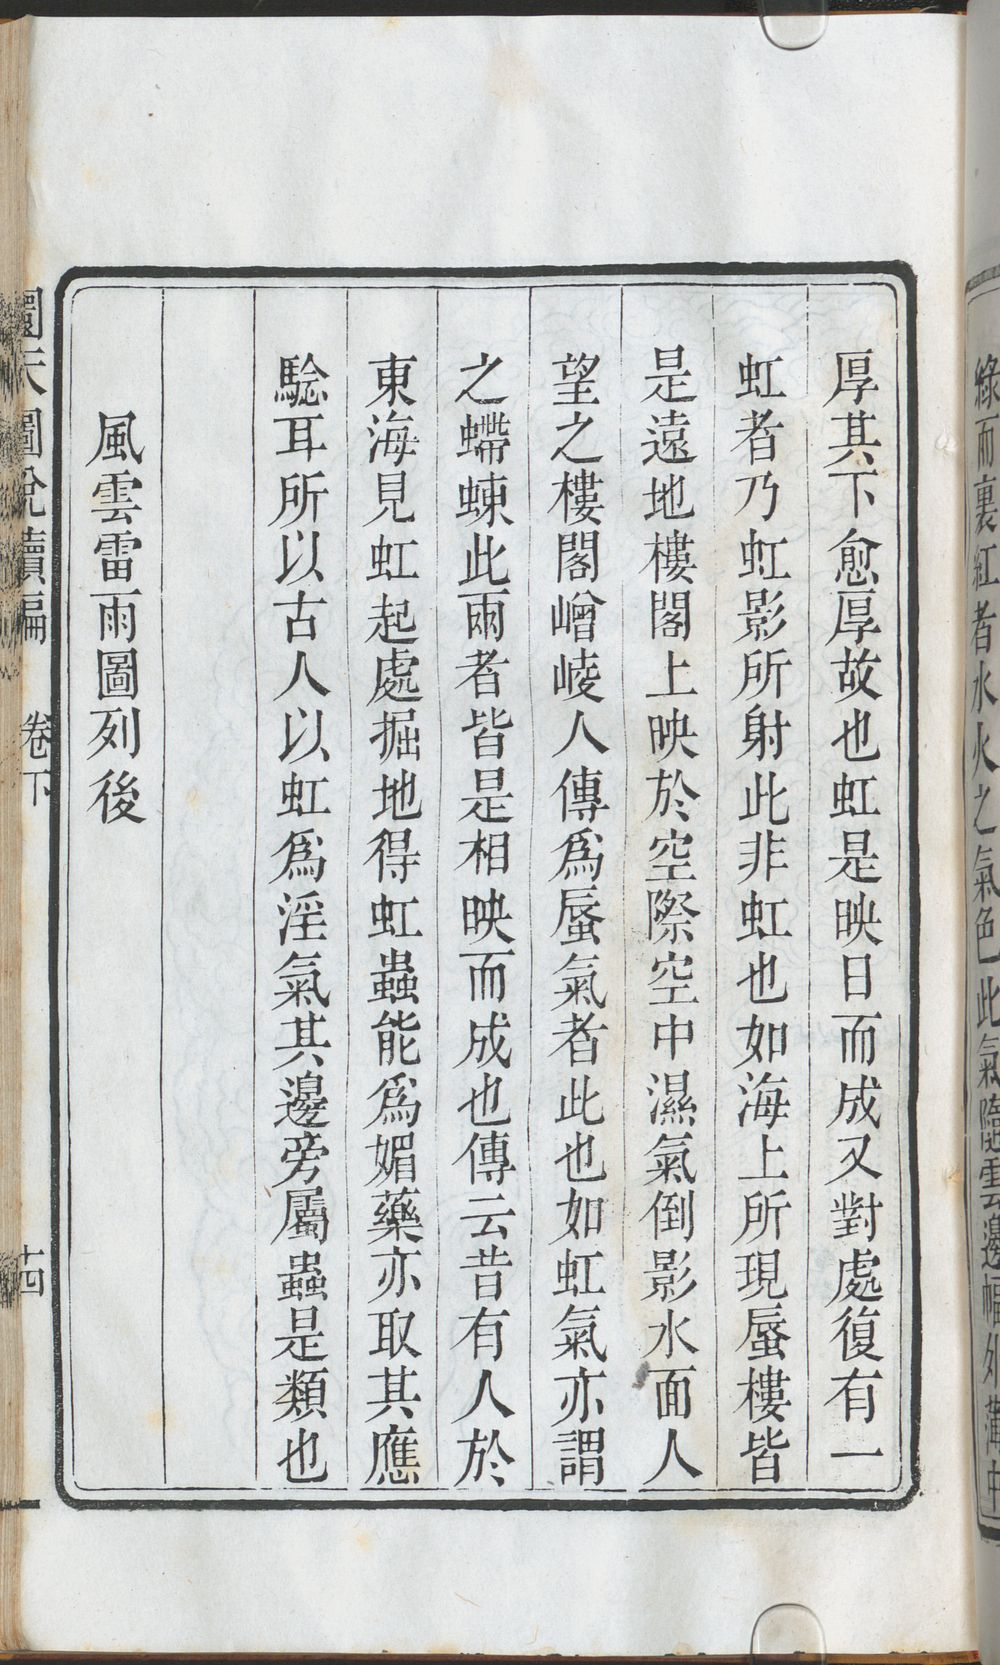 綠而裏紅者水火之氣色此氣隨雲邊幅外薄中
厚其下愈厚故也虹是映日而成又對處復有一
虹者乃虹影所射此非虹也如海上所現蜃樓皆
是遠地樓閣上映於空際空中濕氣倒影水面人
望之樓閣嶒崚人傳爲蜃氣者此也如虹氣亦謂
之蟒蝀此兩者皆是相映而成也傳云昔有人於
東海見虹起處掘地得虹蟲能爲媚藥亦取其應
騐耳所以古人以虹爲淫氣其邊旁屬蟲是類也
風雲雷雨圖列後
圜天圖說續編 卷下 十四